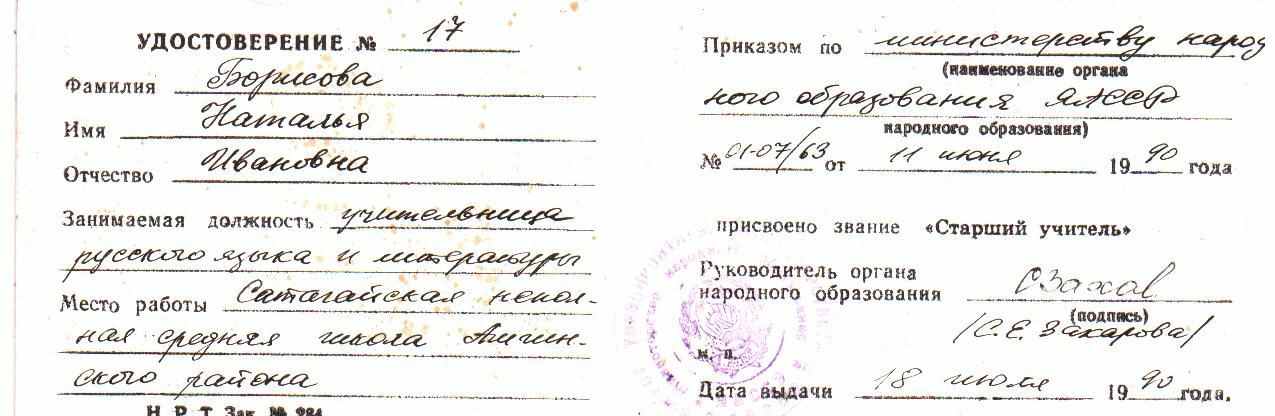 УДОСТОВЕРЕНИЕ № 17
Фамилия Борисова
Имя Наталья
Отчество Ивановна
Занимаемая должность учительница
русского языка и литературы
Место работы Сатагайская непол-
ная средняя школа Амгин-
ского района
Н. Р. Т. Зак. № 984
Приказом по министерству народ
(наименование органа
ного образования ЯАССР
народного образования)
№ 01-07/63 от 11 июня 1990 года
присвоено звание «Старший учитель»
Руководитель органа
народного образования
(подпись)
/С.Е. Захарова/
м. п.
Дата выдачи 18 июля 1990 года.